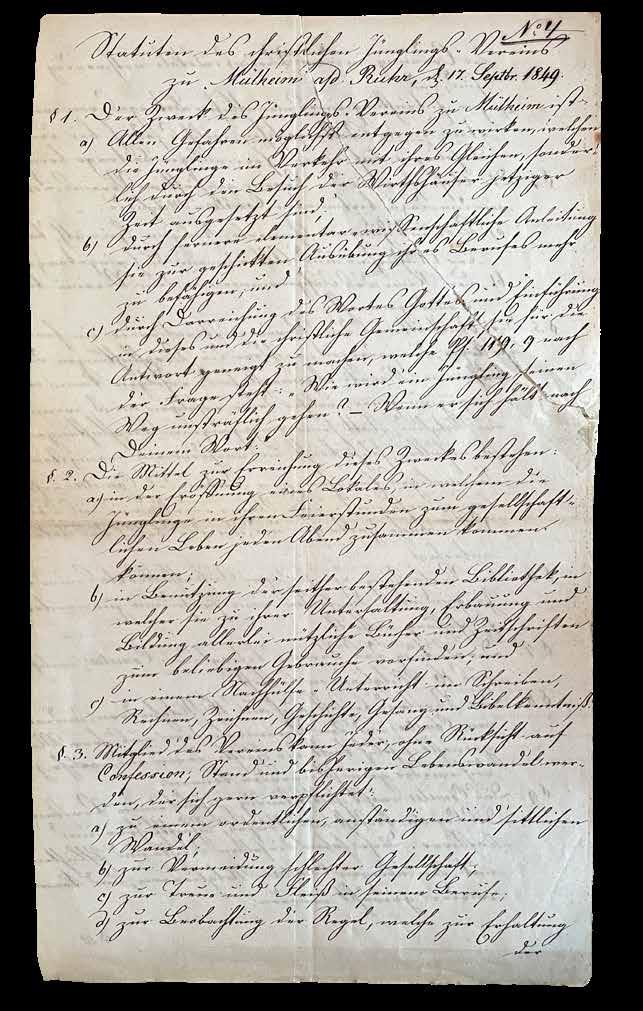 No 4
Statuten des christlichen Jünglings-Vereins
zu Mülheim a/d. Ruhr, d. 17. Septbr. 1849.
§ 1. Der Zweck des Jünglings-Vereins zu Mülheim ist
a) Allen Gefahren möglichst entgegen zu wirken, welchen
die Jünglinge im Verkehr mit ihres Gleichen, sonder-
lich durch den Besuch der Wirthshäuser jetziger
Zeit ausgesetzt sind,
b) durch fernere elementar-wissenschaftliche Anleitung
sie zur geschickten Ausübung ihres Berufes mehr
zu befähigen, und
c) durch Darreichung des Wortes Gottes und Einführung
in dieses und die christliche Gemeinschaft sie für die
Antwort geneigt zu machen, welche Ps 119. 9 nach
der Frage steht: "Wie wird ein Jüngling seinen
Weg unsträflich gehen? – Wenn er sich hält nach
Deinem Wort."
§. 2. Die Mittel zur Erreichung dieses Zweckes bestehen:
a) in der Eröffnung eines Lokales, in welchem die
Jünglinge in ihren Feierstunden zum gesellschaft-
lichen Leben jeden Abend zusammen kommen
können;
b) in Benützung der seither bestehenden Bibliothek, in
welcher sie zu ihrer Unterhaltung, Erbauung und
Bildung allerlei nützliche Bücher und Zeitschriften
zum beliebigen Gebrauche vorfinden; und
c) in einem Nachhülfe-Unterricht im Schreiben,
Rechnen, Zeichnen, Geschichte, Gesang und Bibelkenntniß.
§. 3. Mitglied des Vereins kann jeder, ohne Rücksicht auf
Confession, Stand und bisherigen Lebenswandel wer-
den, der sich gern verpflichtet:
a) zu einem ordentlichen, anständigen und sittlichen
Wandel;
b) zur Vermeidung schlechter Gesellschaft;
c) zur Treue und Fleiß in seinem Berufe;
d) zur Beobachtung der Regel, welche zur Erhaltung
der